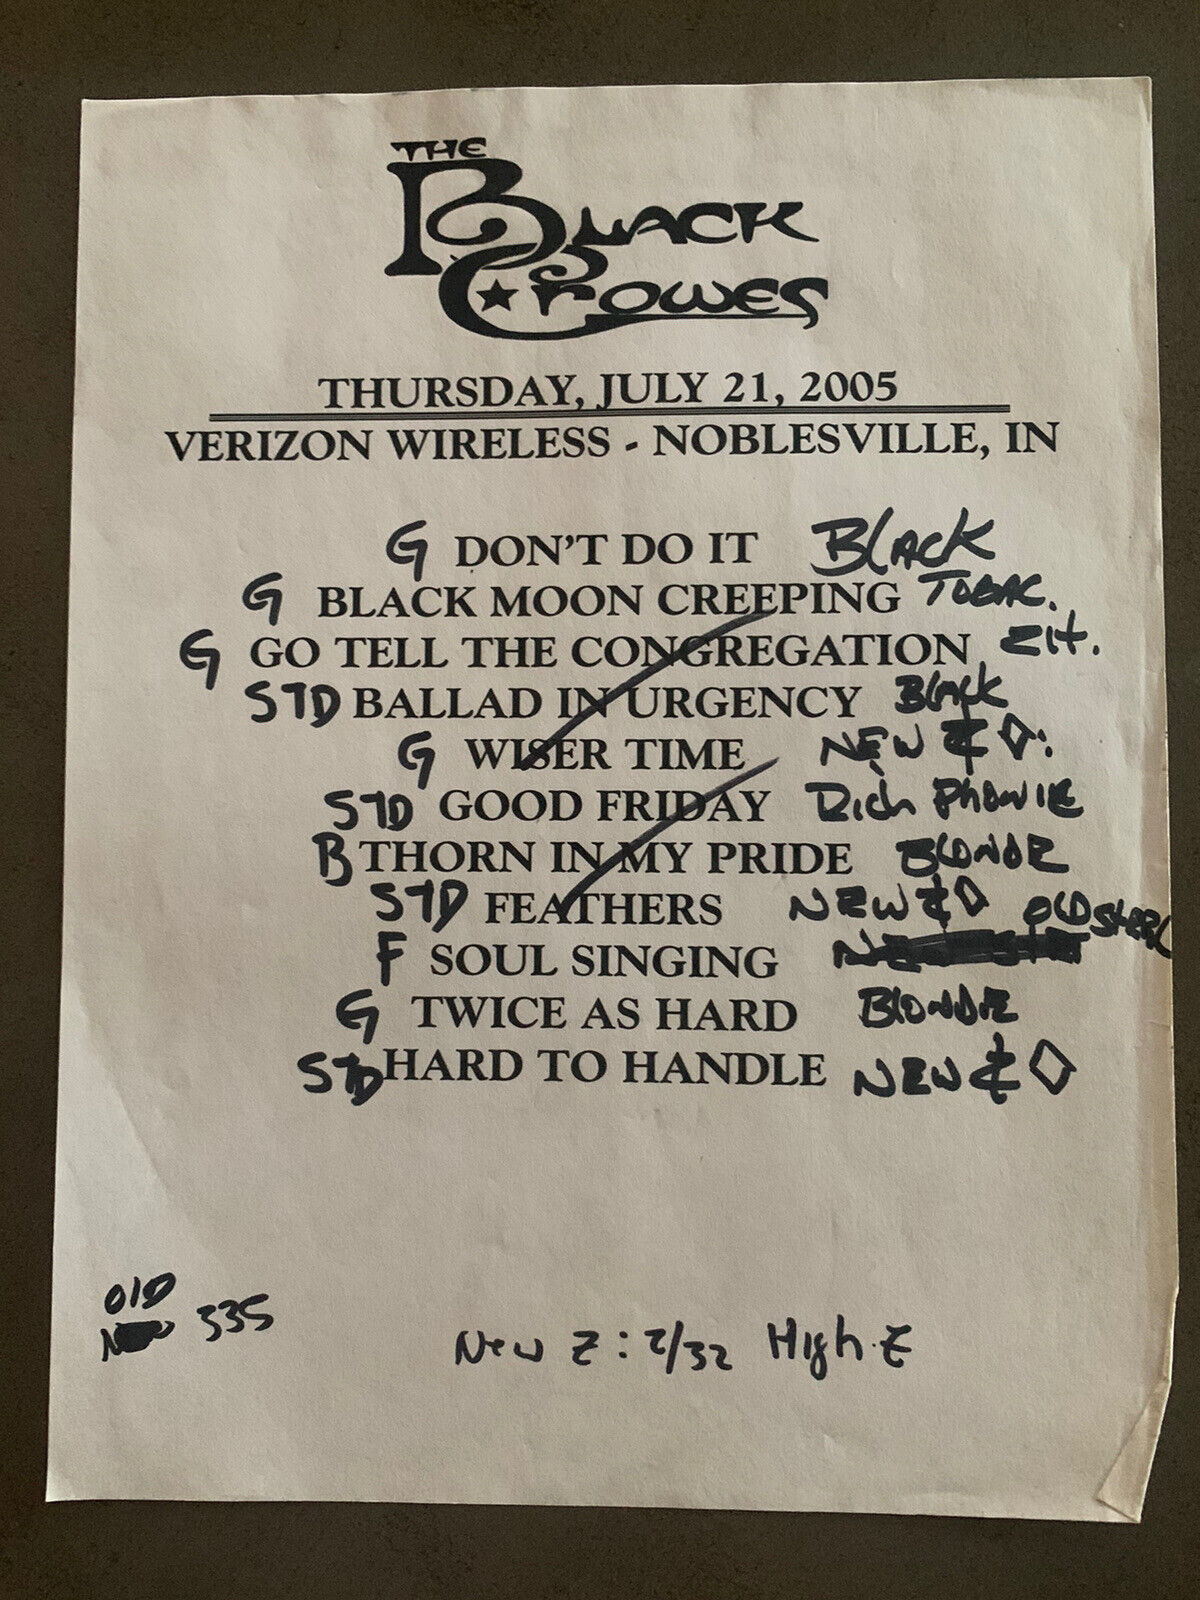 THE
BLACK
CROWES
THURSDAY, JULY 21, 2005
VERIZON WIRELESS - NOBLESVILLE, IN
G DON'T DO IT BLACK
G BLACK MOON CREEPING TOBAC.
G GO TELL THE CONGREGATION
STD BALLAD IN URGENCY BLACK
G WISER TIME NEW
STD GOOD FRIDAY Rich
B THORN IN MY PRIDE BLONDE
STD FEATHERS NEW
F SOUL SINGING OLD
G TWICE AS HARD BLONDIE
STD HARD TO HANDLE NEW
OLD
335
New Z: 2/32 High E